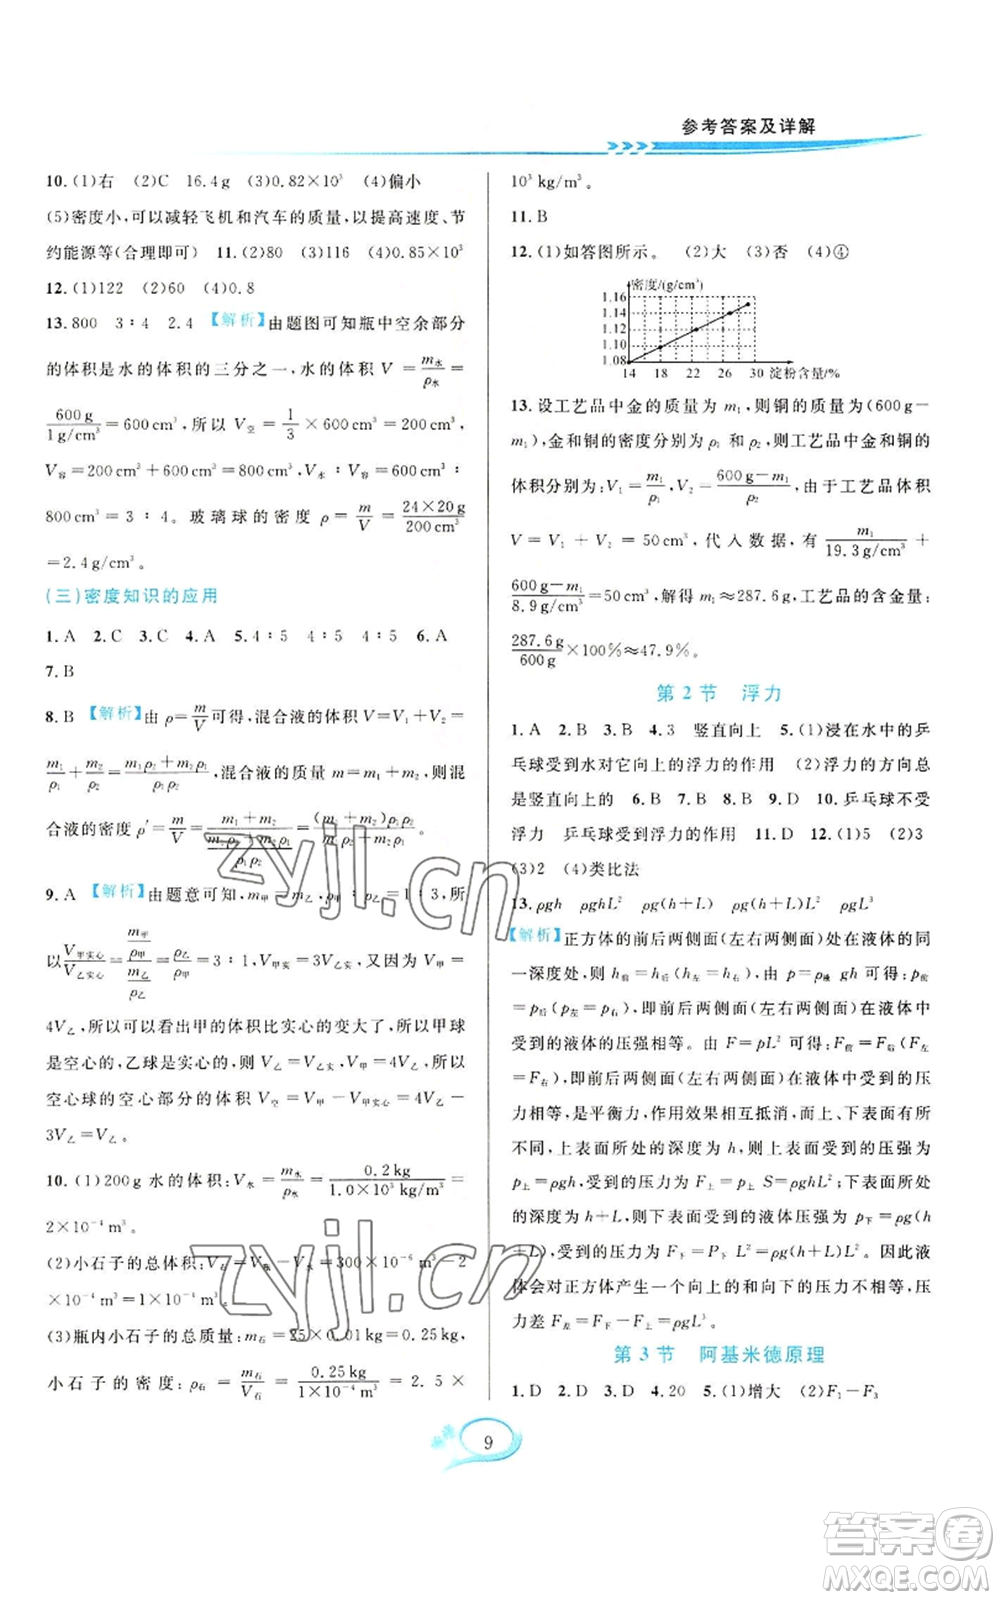 参考答案及详解
10.(1)右 (2)C 16.4g (3)0.82×10³ (4)偏小
(5)密度小,可以减轻飞机和汽车的质量,以提高速度、节
约能源等(合理即可) 11.(2)80 (3)116 (4)0.85×10³
12.(1)122 (2)60 (4)0.8
13.800 3∶4 2.4 【解析】由题图可知瓶中空余部分
的体积是水的体积的三分之一,水的体积 V = m水/ρ水 =
600 g/1 g/cm³ = 600 cm³,所以 V空 = 1/3 × 600 cm³ = 200 cm³,
V容 = 200 cm³ + 600 cm³ = 800 cm³,V水∶V容 = 600 cm³∶
800 cm³ = 3∶4。玻璃球的密度 ρ = m/V = 24×20 g/200 cm³
=2.4 g/cm³。
(三)密度知识的应用
1.A 2.C 3.C 4.A 5.4∶5 4∶5 4∶5 6.A
7.B
8.B 【解析】由 ρ = m/V 可得,混合液的体积 V = V₁ + V₂ =
m₁/ρ₁ + m₂/ρ₂ = m₁ρ₂ + m₂ρ₁/ρ₁ρ₂,混合液的质量 m = m₁ + m₂,则混
合液的密度 ρ′ = m/V = m₁ + m₂/m₁ρ₂ + m₂ρ₁/ρ₁ρ₂
9.A 【解析】由题意可知,m甲∶m乙 = ρ甲∶ρ乙 = 1∶3,所
以 V甲实心/V乙实心 = m甲/ρ甲/m乙/ρ乙 = 3∶1,V甲实 = 3V乙实,又因为 V甲 =
4V乙,所以可以看出甲的体积比实心的变大了,所以甲球
是空心的,乙球是实心的,V乙 = V乙实,V甲 = 4V乙,所以
空心球的空心部分的体积 V空 = V甲 − V甲实心 = 4V乙 −
3V乙 = V乙。
10.(1)200 g 水的体积:V水 = m水/ρ水 = 0.2 kg/1.0×10³ kg/m³ =
2×10⁻⁴ m³。
(2)小石子的总体积:V石 = V瓶 − V水 = 300×10⁻⁶ m³ − 2
×10⁻⁴ m³ = 1×10⁻⁴ m³。
(3)瓶内小石子的总质量:m石 = 25×0.01 kg = 0.25 kg,
小石子的密度:ρ石 = m石/V石 = 0.25 kg/1×10⁻⁴ m³ = 2.5 ×
10³ kg/m³。
11.B
12.(1)如答图所示。 (2)大 (3)否 (4)④
密度/(g/cm³)
1.16
1.14
1.12
1.10
1.08
14 18 22 26 30 淀粉含量/%
13.设工艺品中金的质量为 m₁,则铜的质量为(600 g−
m₁),金和铜的密度分别为 ρ₁ 和 ρ₂,则工艺品中金和铜的
体积分别为:V₁ = m₁/ρ₁,V₂ = 600 g−m₁/ρ₂,由于工艺品体积
V = V₁ + V₂ = 50 cm³,代入数据,有 m₁/19.3 g/cm³ +
600 g−m₁/8.9 g/cm³ = 50 cm³,解得 m₁≈287.6 g,工艺品的含金量:
287.6 g/600 g ×100%≈47.9%。
第 2 节 浮力
1.A 2.B 3.B 4.3 竖直向上 5.(1)浸在水中的乒
乓球受到水对它向上的浮力的作用 (2)浮力的方向总
是竖直向上的 6.B 7.B 8.B 9.D 10.乒乓球不受
浮力 乒乓球受到浮力的作用 11.D 12.(1)5 (2)3
(3)2 (4)类比法
13.ρgh ρghL² ρg(h+L) ρg(h+L)L² ρgL³
【解析】正方体的前后两侧面(左右两侧面)处在液体的同
一深度处,则 h前 = h后(h左 = h右),由 p = ρ液 gh 可得:p前
= p后(p左 = p右),即前后两侧面(左右两侧面)在液体中
受到的液体的压强相等。由 F = pL² 可得:F前 = F后(F左
= F右),即前后两侧面(左右两侧面)在液体中受到的压
力相等,是平衡力,作用效果相互抵消,而上、下表面有所
不同,上表面所处的深度为 h,则上表面受到的压强为
p上 = ρgh,受到的压力为 F上 = p上 S = ρghL²,下表面所处
的深度为 h+L,则下表面受到的液体压强为 p下 = ρg(h
+L),受到的压力为 F下 = P下 L² = ρg(h+L)L²。因此液
体会对正方体产生一个向上的和向下的压力不相等,压
力差 F差 = F下 − F上 = ρgL³
第 3 节 阿基米德原理
1.D 2.D 3.D 4.20 5.(1)增大 (2)F₁−F₃
9
zyjl.cn
zyjl.cn
答案卷
MXQE.COM